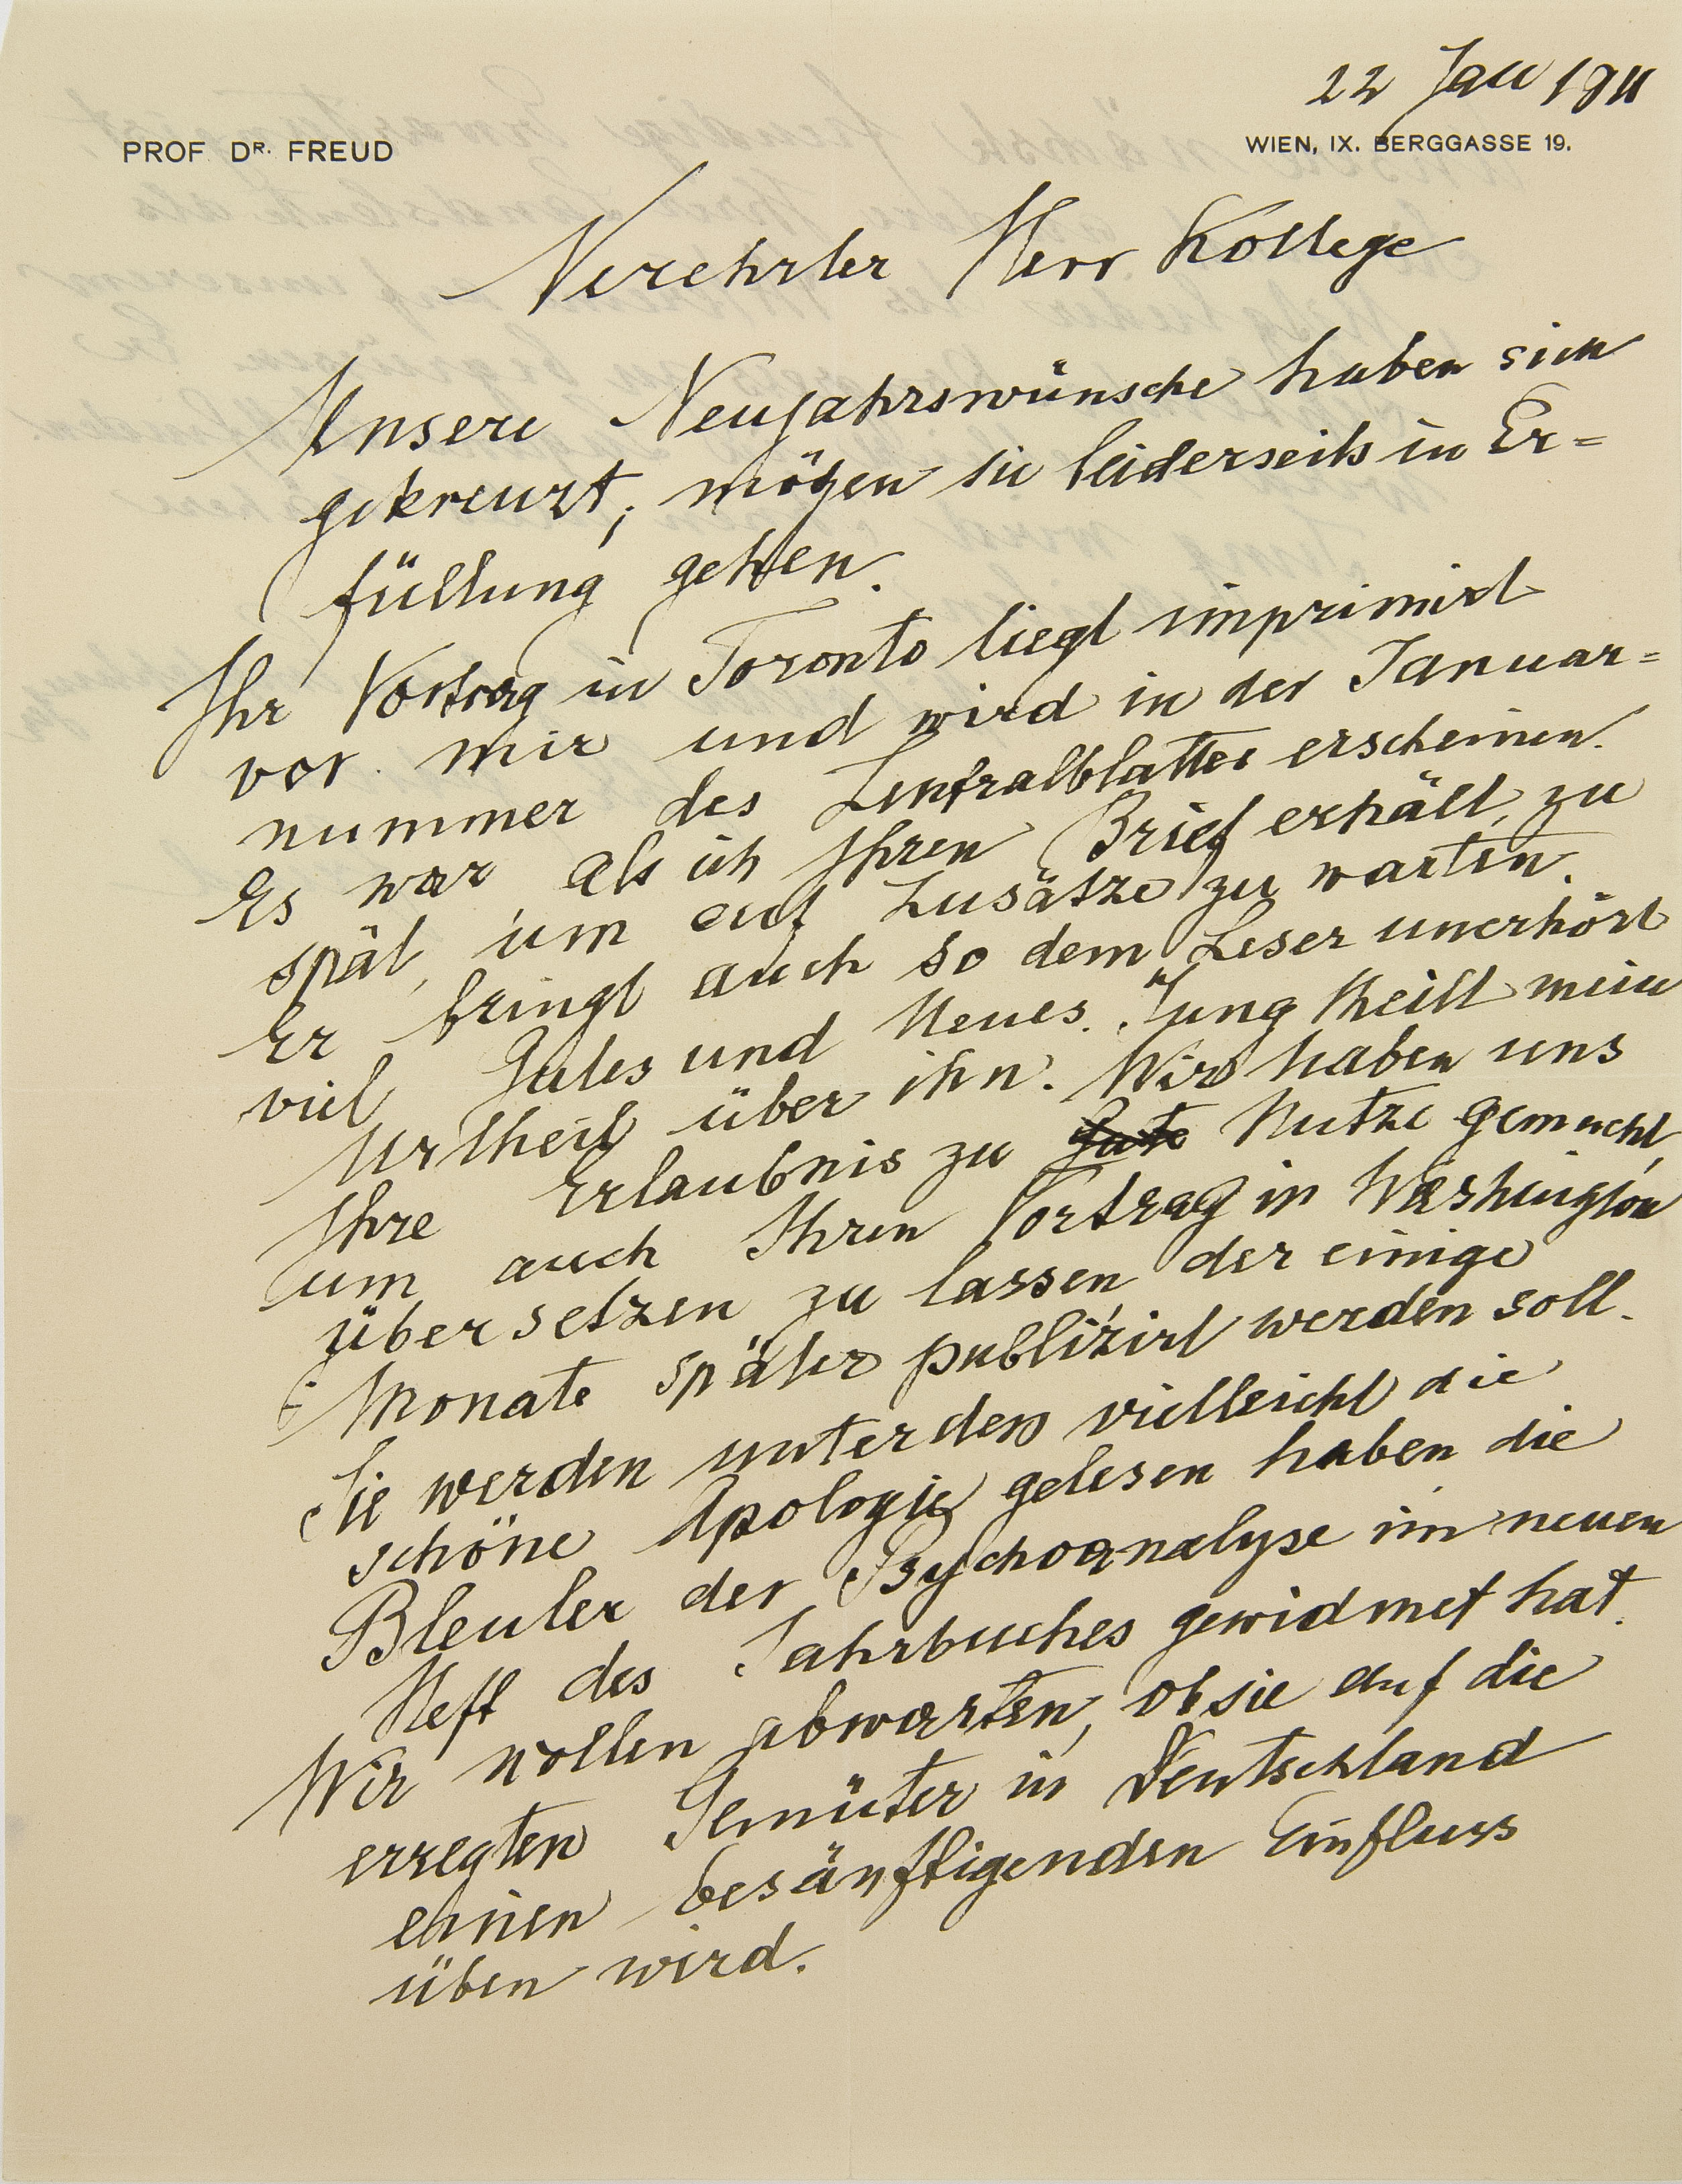 22 Jan 1911
PROF. DR. FREUD
WIEN, IX. BERGGASSE 19.
Verehrter Herr Kollege
Unsere Neujahrswünsche haben sich
gekreuzt; mögen sie beiderseits in Er=
füllung gehen.
Ihr Vortrag in Toronto liegt imprimirt
vor mir und wird in der Januar=
nummer des Zentralblattes erscheinen.
Es war als ich Ihren Brief erhält, zu
spät, um auf Zusätze zu warten.
Er bringt auch so dem Leser unerhört
viel Gutes und Neues. Jung theilt mein
Urtheil über ihn. Wir haben uns
Ihre Erlaubnis zu Nutze gemacht,
um auch Ihren Vortrag in Washington
übersetzen zu lassen der einige
Monate später publizirt werden soll.
Sie werden unterdess vielleicht die
schöne Apologie gelesen haben die
Bleuler der Psychoanalyse im neuen
Heft des Jahrbuches gewidmet hat.
Wir wollen abwarten, ob sie auf die
erregten Gemüter in Deutschland
einen besänftigenden Einfluss
üben wird.